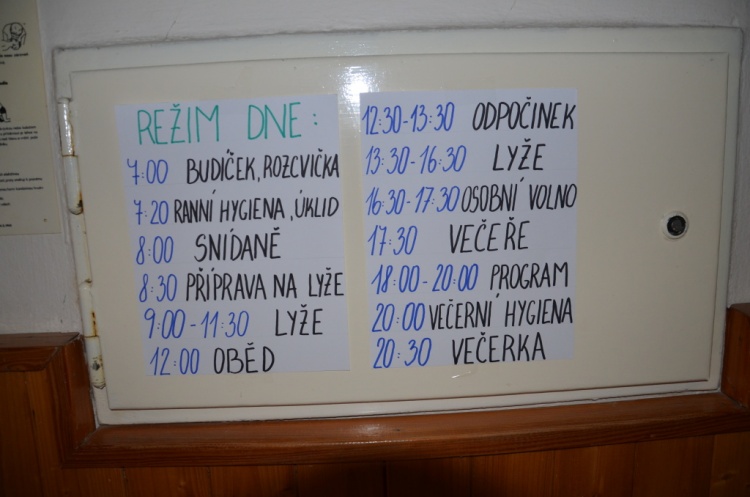 REŽIM DNE:
7:00 BUDÍČEK, ROZCVIČKA
7:20 RANNÍ HYGIENA, ÚKLID
8:00 SNÍDANĚ
8:30 PŘÍPRAVA NA LYŽE
9:00-11:30 LYŽE
12:00 OBĚD
12:30-13:30 ODPOČINEK
13:30-16:30 LYŽE
16:30-17:30 OSOBNÍ VOLNO
17:30 VEČEŘE
18:00-20:00 PROGRAM
20:00 VEČERNÍ HYGIENA
20:30 VEČERKA